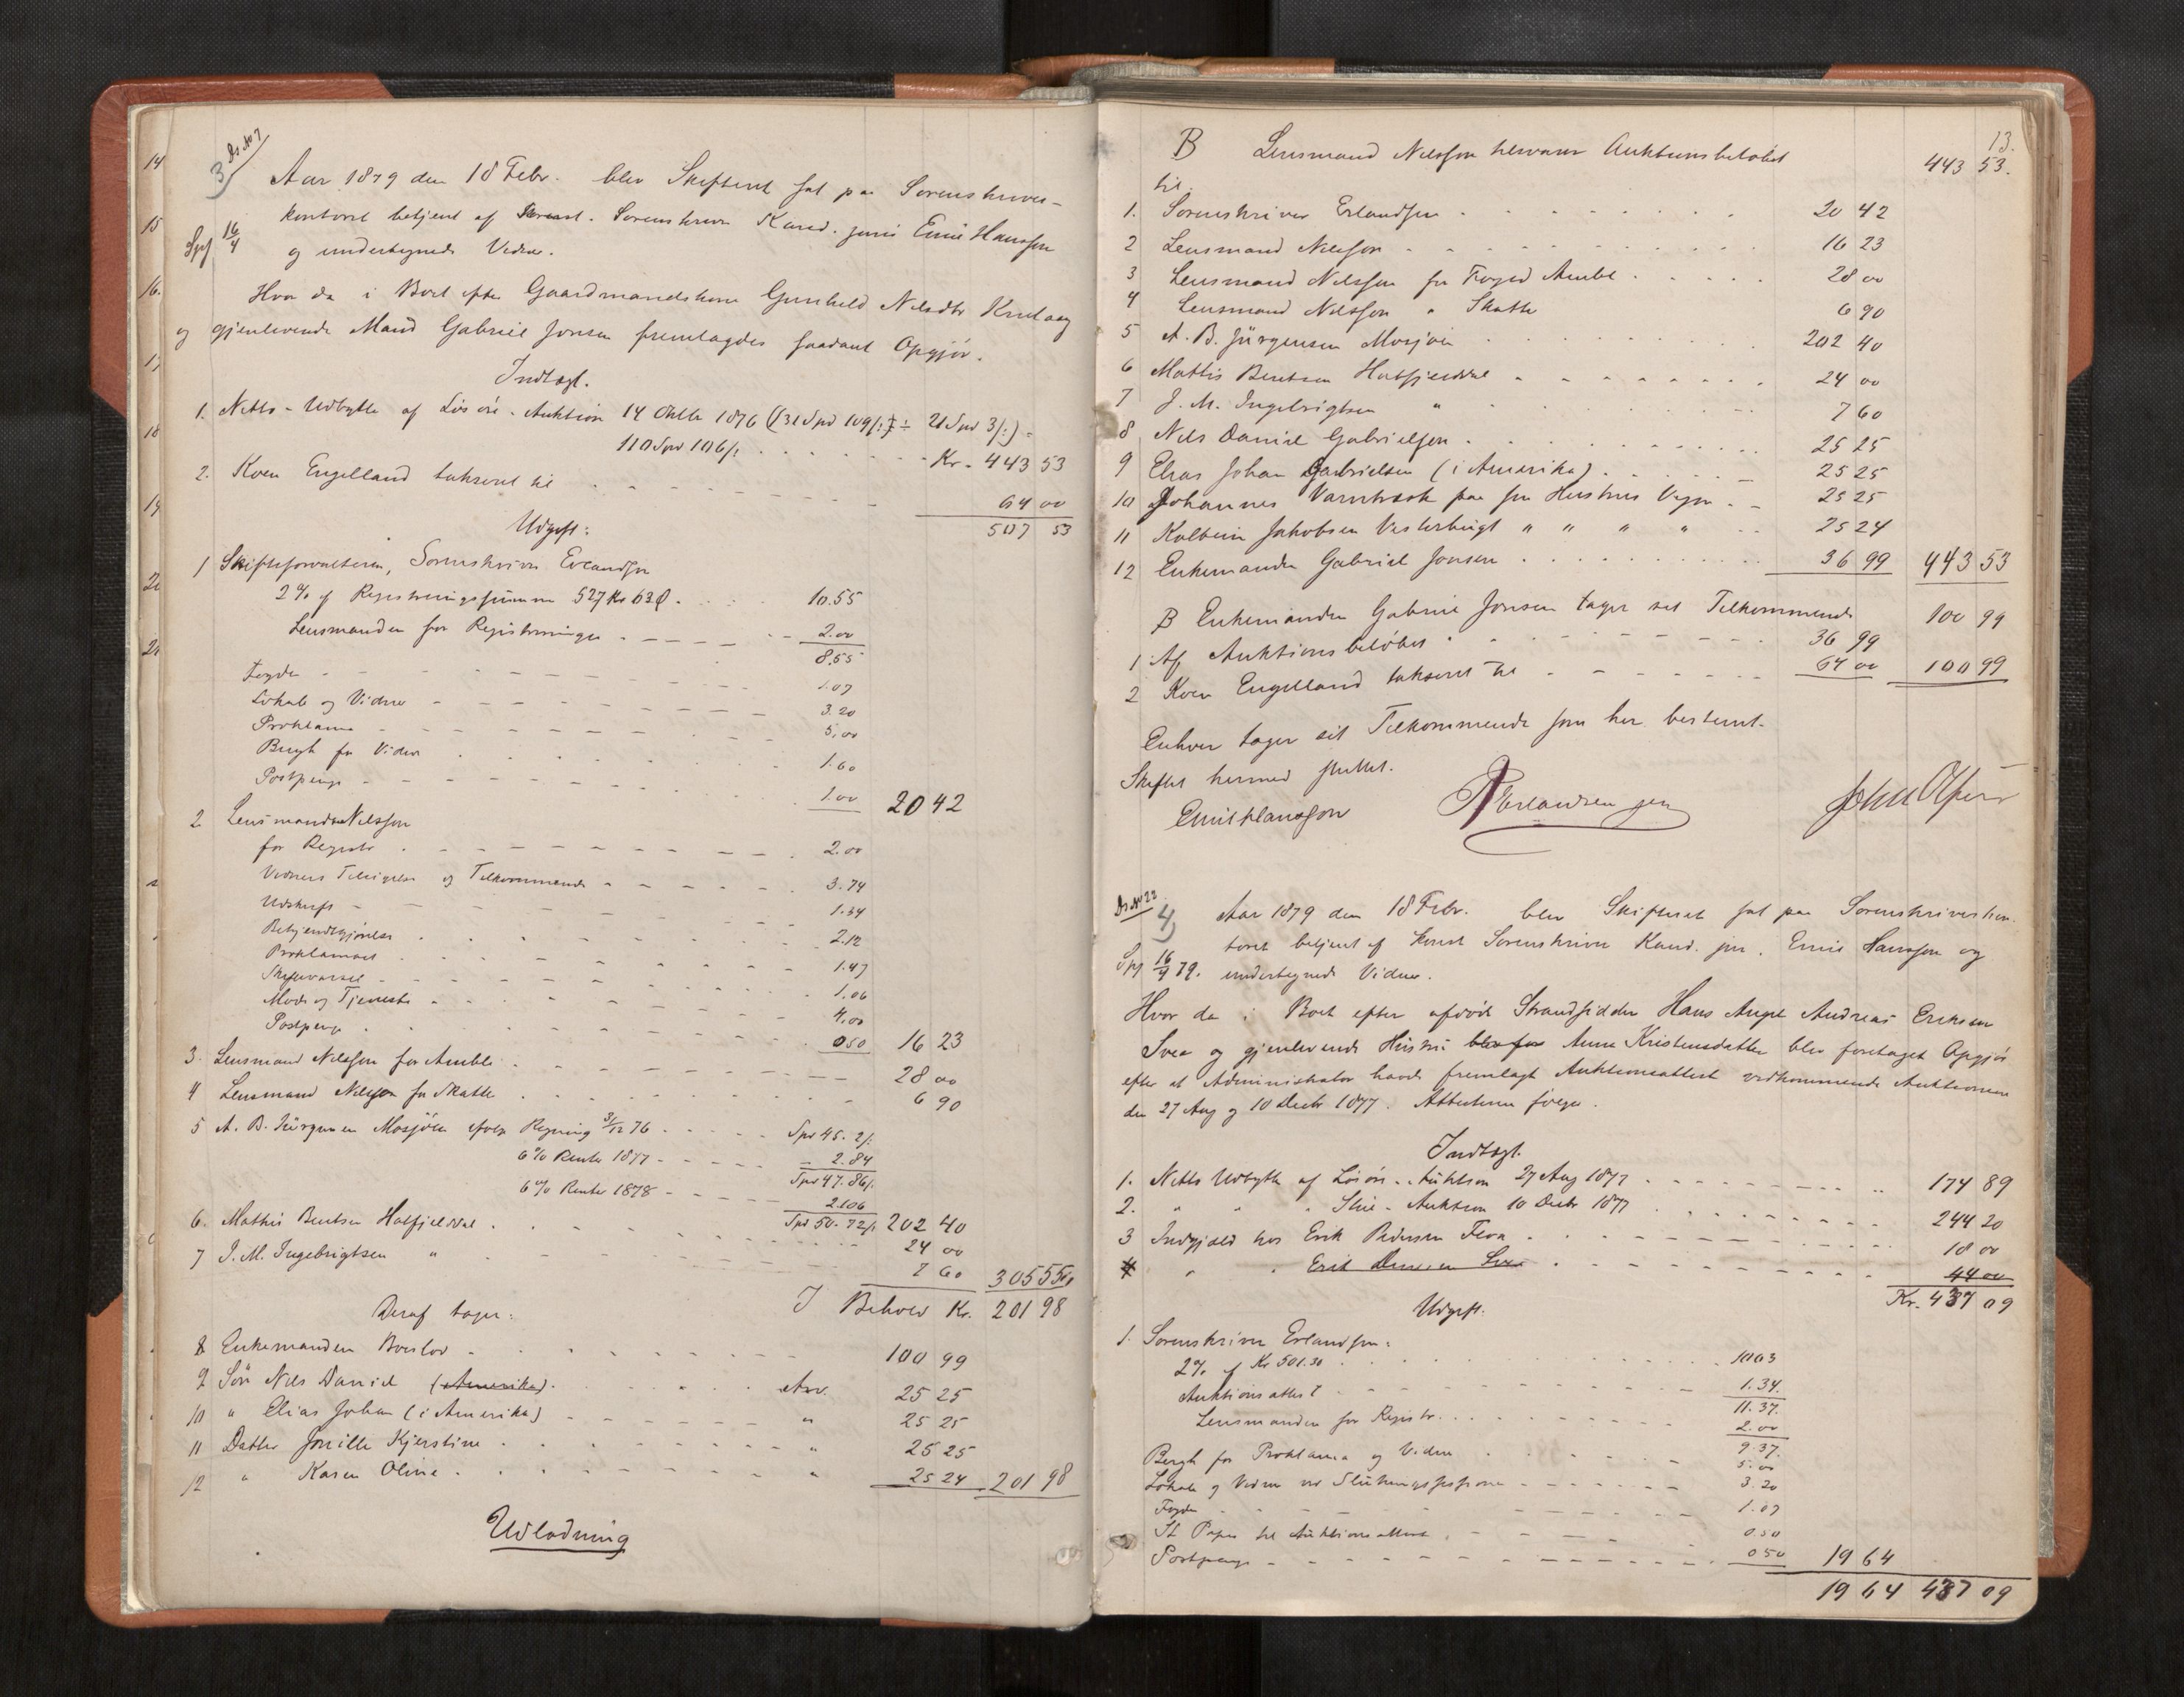 Ds No 7
3)
Aar 1879 den 18 Febr. blev Skifteret sat paa Sorenskriver-
kontoret betjent af Konst. Sorenskriver Kand. juris Emil Hansson
16/4
og undertegnede Vidner.
Hvor da i Boet efter Gaardmandskone Gunhild Nilsdtr
og gjenlevende Mand Gabriel Jonsen fremlagdes saadant Opgjör.
Indtægt.
1. Netto-Udbytte af Lösöre-Auktion 14 Oktbr 1876 (131 Spd 109/: ÷ 21 Spd 3/:) =
110 Spd 106/: Kr. 443 53
2. Koen Engelland taxeret til 64 00
507 53
Udgift:
1 Skifteforvalteren, Sorenskriver Erlandsen
2 % af Registreringssummen 527 Kr 63 Ø. 10.55
Lensmanden for Registreringen 2.00
8.55
Fogden 1.07
Lokale og Vidner 3.20
Proklama 5.00
Bergh for Vidner 1.60
Postpenge 1.00 20 42
2 Lensmand Nilsson
for Registr 2.00
Vidners Tilsigelse og Tilkommende 3.74
Udskrift 1.34
Bekjendtgjörelse 2.12
Proklamaet 1.47
Skiftevarsel 1.06
Möde og Tjeneste 4.00
Postpenge 0 50 16 23
3. Lensmand Nilsson for Amble 28 00
4 Lensmand Nilsson for Skatter 6 90
5 A. B. Jürgensen Mosjöen ifölge Regning 31/12 76 Spd 45. 2/:
6 % Renter 1877 - 2.84
Spd 47.86/:
6 % Renter 1878 - 2.106
Spd 50. 72/: 202 40
6. Mathis Bentsen Hatfjelddal 24 00
7 J. M. Ingebrigtsen " 7 60 305 55
I Behold Kr. 201 98
Deraf tager:
8 Enkemanden Boeslod 100 99
9 Sön Nils Daniel (Amerika). Arv. 25 25
10 " Elias Johan (i Amerika) " 25 25
11 Datter Jonille Kjerstine " 25 25
12 " Karen Oline " 25 24 201 98
Udlodning
13.
B Lensmand Nilsson tilsvarer Auktionsbelöbet 443 53.
til.
1. Sorenskriver Erlandsen 20 42
2 Lensmand Nilsson 16 23
3 Lensmand Nilsson for Foged Amble 28 00
4 Lensmand Nilsson " Skatter 6 90
5 A. B. Jürgensen Mosjöen 202 40
6 Mathis Bentsen Hatfjelddal 24 00
7 J. M. Ingebrigtsen " 7 60
8 Nils Daniel Gabrielsen 25 25
9 Elias Johan Gabrielsen (i Amerika) 25 25
10 Johannes Varntræsk paa sin Hustrus Vegne 25 25
11 Kolbein Jakobsen Vesterbugt " " " " 25 24
12 Enkemanden Gabriel Jonsen 36 99 443 53
B Enkemanden Gabriel Jonsen tager sit Tilkommende 100 99
1 Af Auktionsbelöbet 36 99
2 Koen Engelland taxeret til 64 00 100 99
Enhver tager sit Tilkommende som her bestemt.
Skiftet hermed sluttet.
Emil Hansson Erlandsen John Olsen
Ds No 22
4)
Aar 1879 den 18 Febr. blev Skifteret sat paa Sorenskriverkon-
toret betjent af konst Sorenskriver Kand. jur. Emil Hansson og
16/4 79. undertegnede Vidner.
Hvor da i Boet efter afdöde Strandsidder Hans Angel Andreas Eriksen
Svea og gjenlevende Hustru blev for Anne Kristensdatter blev foretaget Opgjör
efter at Administrator havde fremlagt Auktionsattest vedkommende Auktionerne
den 27 Aug og 10 Decbr 1877. Attesterne fölger.
Indtægt.
1. Netto Udbytte af Lösöre-Auktion 27 Aug 1877 174 89
2. " " " Auktion 10 Decbr 1877 244 20
3 Indgjæld hos Erik Pedersen 18 00
4 " " Erik 44 00
Kr. 437 09
Udgift.
1. Sorenskriver Erlandsen:
2% af Kr 501.30 10 03
Auktionsattest 1.34.
11.37.
Lensmanden for Registr. 2.00
9.37.
Bergh for Proklama og Vidner 5.00
Lokale og Vidner ved Slutningssessionen 3.20
Fogden 1.07
St Papir til Auktionsattest 0.50
Postpenge 0 50 19 64
19 64 437 09
14
15
16.
17
18
19